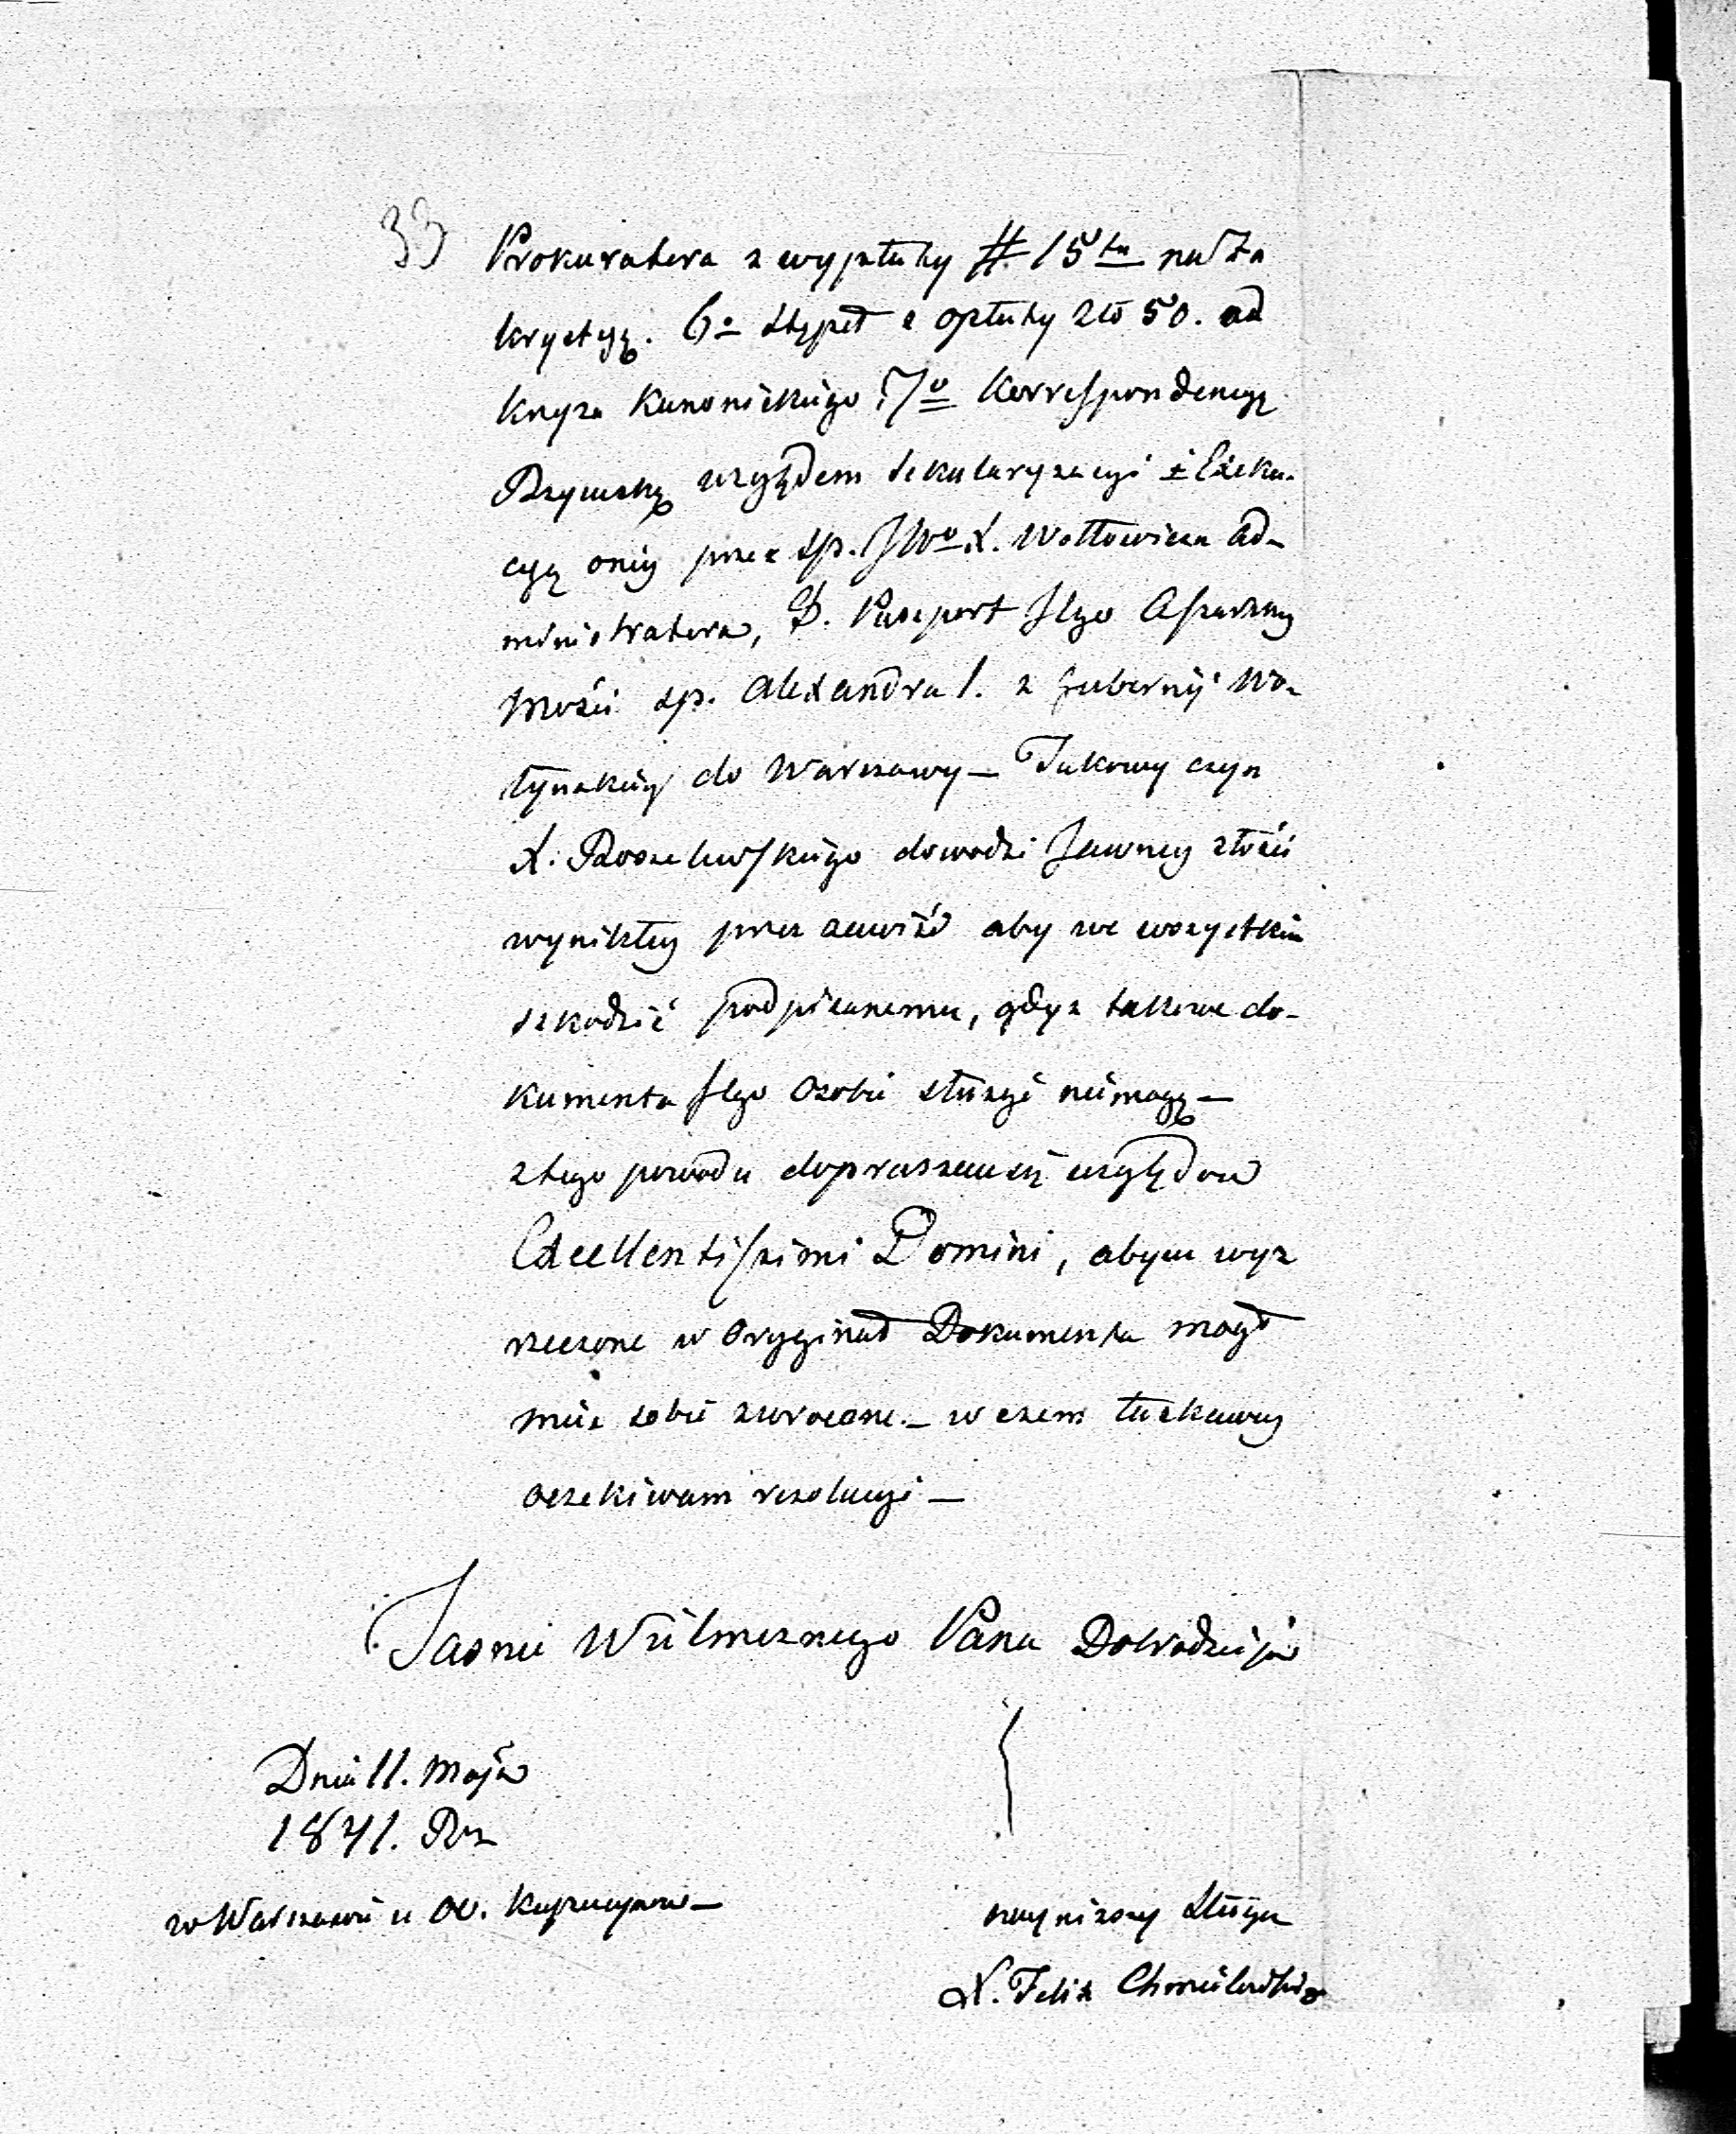 33
Prokuratora z wypłaty # 15tu na Za
krystyą. 6o Sztępel z opłaty Złо 50. od
Krzyża Kanonickiego, 7o Korrespondencyą
Rzymską względem sekularyzacyi i Exeku-
cyą oniy przez sp. JWo X. Wołłowicza Ad-
ministratora, 8. Paszport Jego Cesarskiy
Mości sp. Alexandra I. z Gubernij Wo-
łyńskiy do Warszawy — Takowy czyn
X. Roszelewskiego dowodzi Jawney złości
wynikłey przez zawiść aby we wszystkim
szkodzić podpisanemu, gdyż takowe do-
kumenta Jego Osobie służyć niemogą —
z tego powodu dopraszam się względów
Excellentissimi Domini, abym wyż
rzeczone w Oryginał Dokumenta mogł
mieć sobie zwrocone. — w czem łaskawey
oczekiwam rezolucyi —
Jasnie Wielmożnego Pana Dobrodzieja
Dnia 11. Maja
1841. Rz
w Warszawie u OO. Kapucynów —
nayniższy Sługa
X. Felix Chmielewski